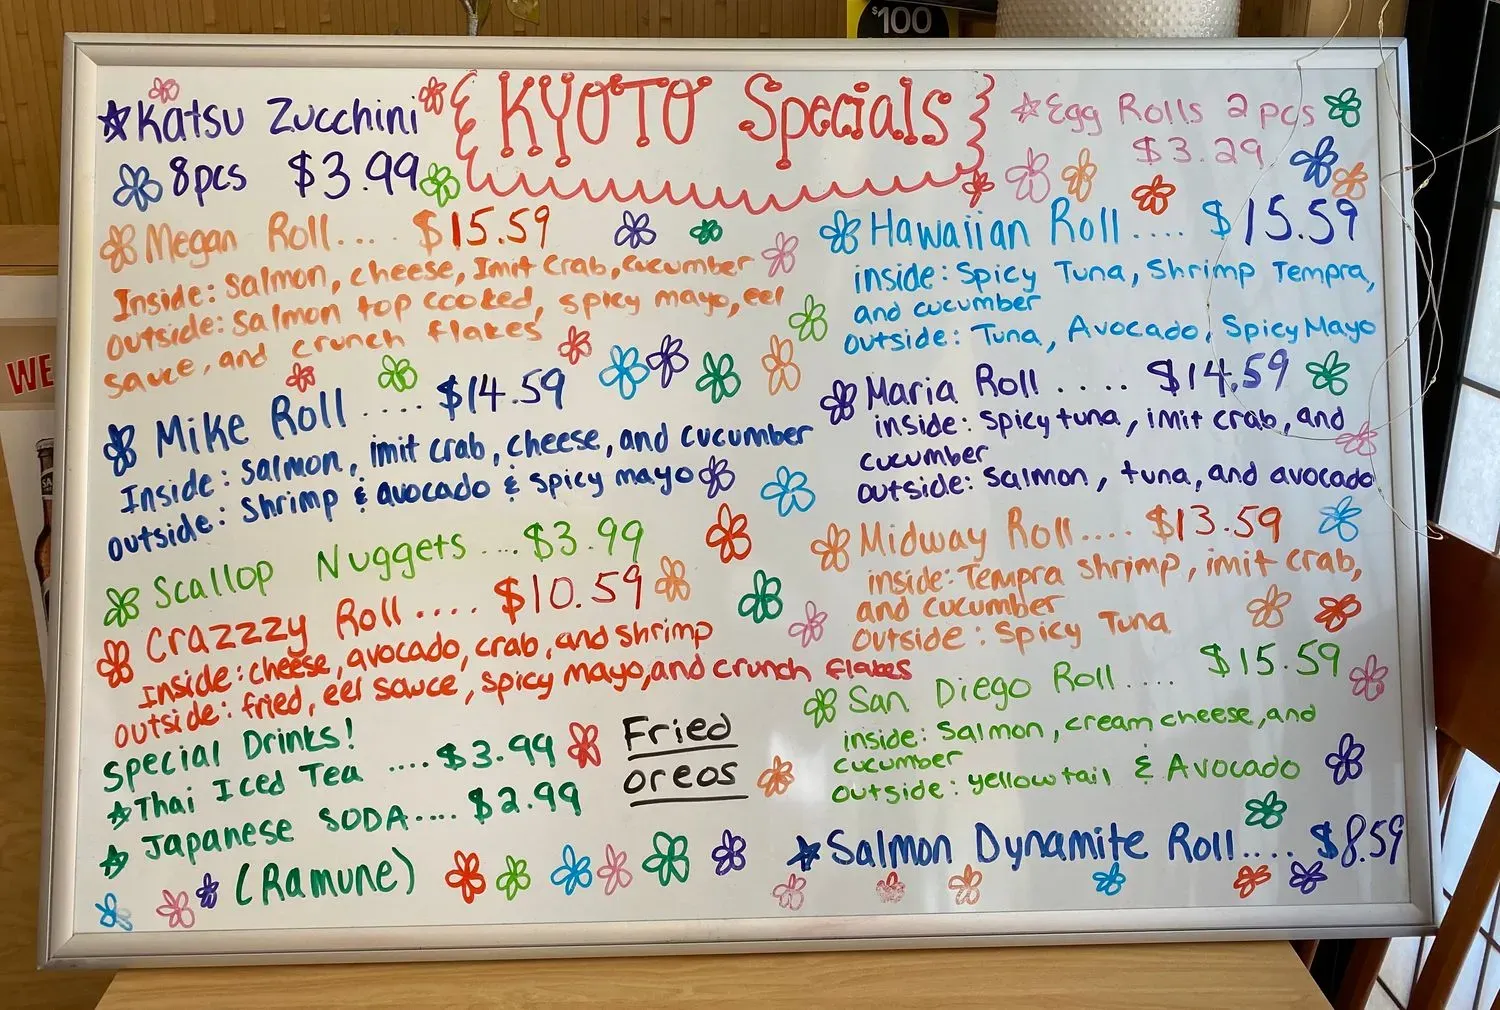 $100
KYOTO Specials
☆Katsu Zucchini
8pcs $3.99
Megan Roll.... $15.59
Inside: Salmon, cheese, Imit Crab, cucumber
outside: Salmon top cooked, spicy mayo, eel
sauce, and crunch flakes
Mike Roll .... $14.59
Inside: salmon, imit crab, cheese, and cucumber
outside: Shrimp & avocado & spicy mayo
Scallop Nuggets ... $3.99
Crazzzy Roll .... $10.59
Inside: cheese, avocado, crab, and shrimp
outside: fried, eel sauce, spicy mayo, and crunch flakes
Special Drinks!
☆Thai Iced Tea .... $3.99
☆Japanese SODA.... $2.99
(Ramune)
Fried
oreos
☆Egg Rolls 2pcs
$3.29
Hawaiian Roll .... $15.59
inside: Spicy Tuna, Shrimp Tempra,
and cucumber
outside: Tuna, Avocado, Spicy Mayo
Maria Roll .... $14.59
inside: Spicy tuna, imit crab, and
cucumber
outside: Salmon, tuna, and avocado
Midway Roll.... $13.59
inside: Tempra shrimp, imit crab,
and cucumber
outside: Spicy Tuna
San Diego Roll .... $15.59
inside: Salmon, cream cheese, and
cucumber
outside: yellowtail & Avocado
☆Salmon Dynamite Roll.... $8.59
WE